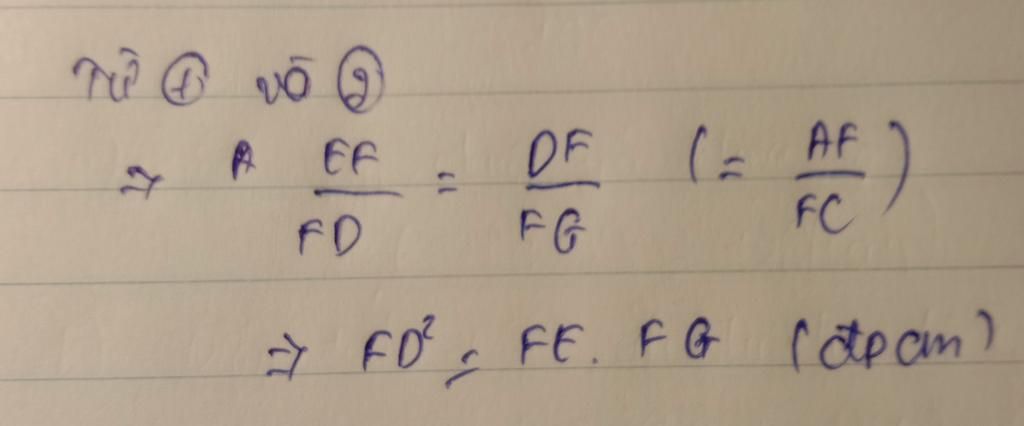 Từ ① và ②
⇒ A EF/FD = DF/FG (= AF/FC)
⇒ FD² = FE. FG (đpcm)